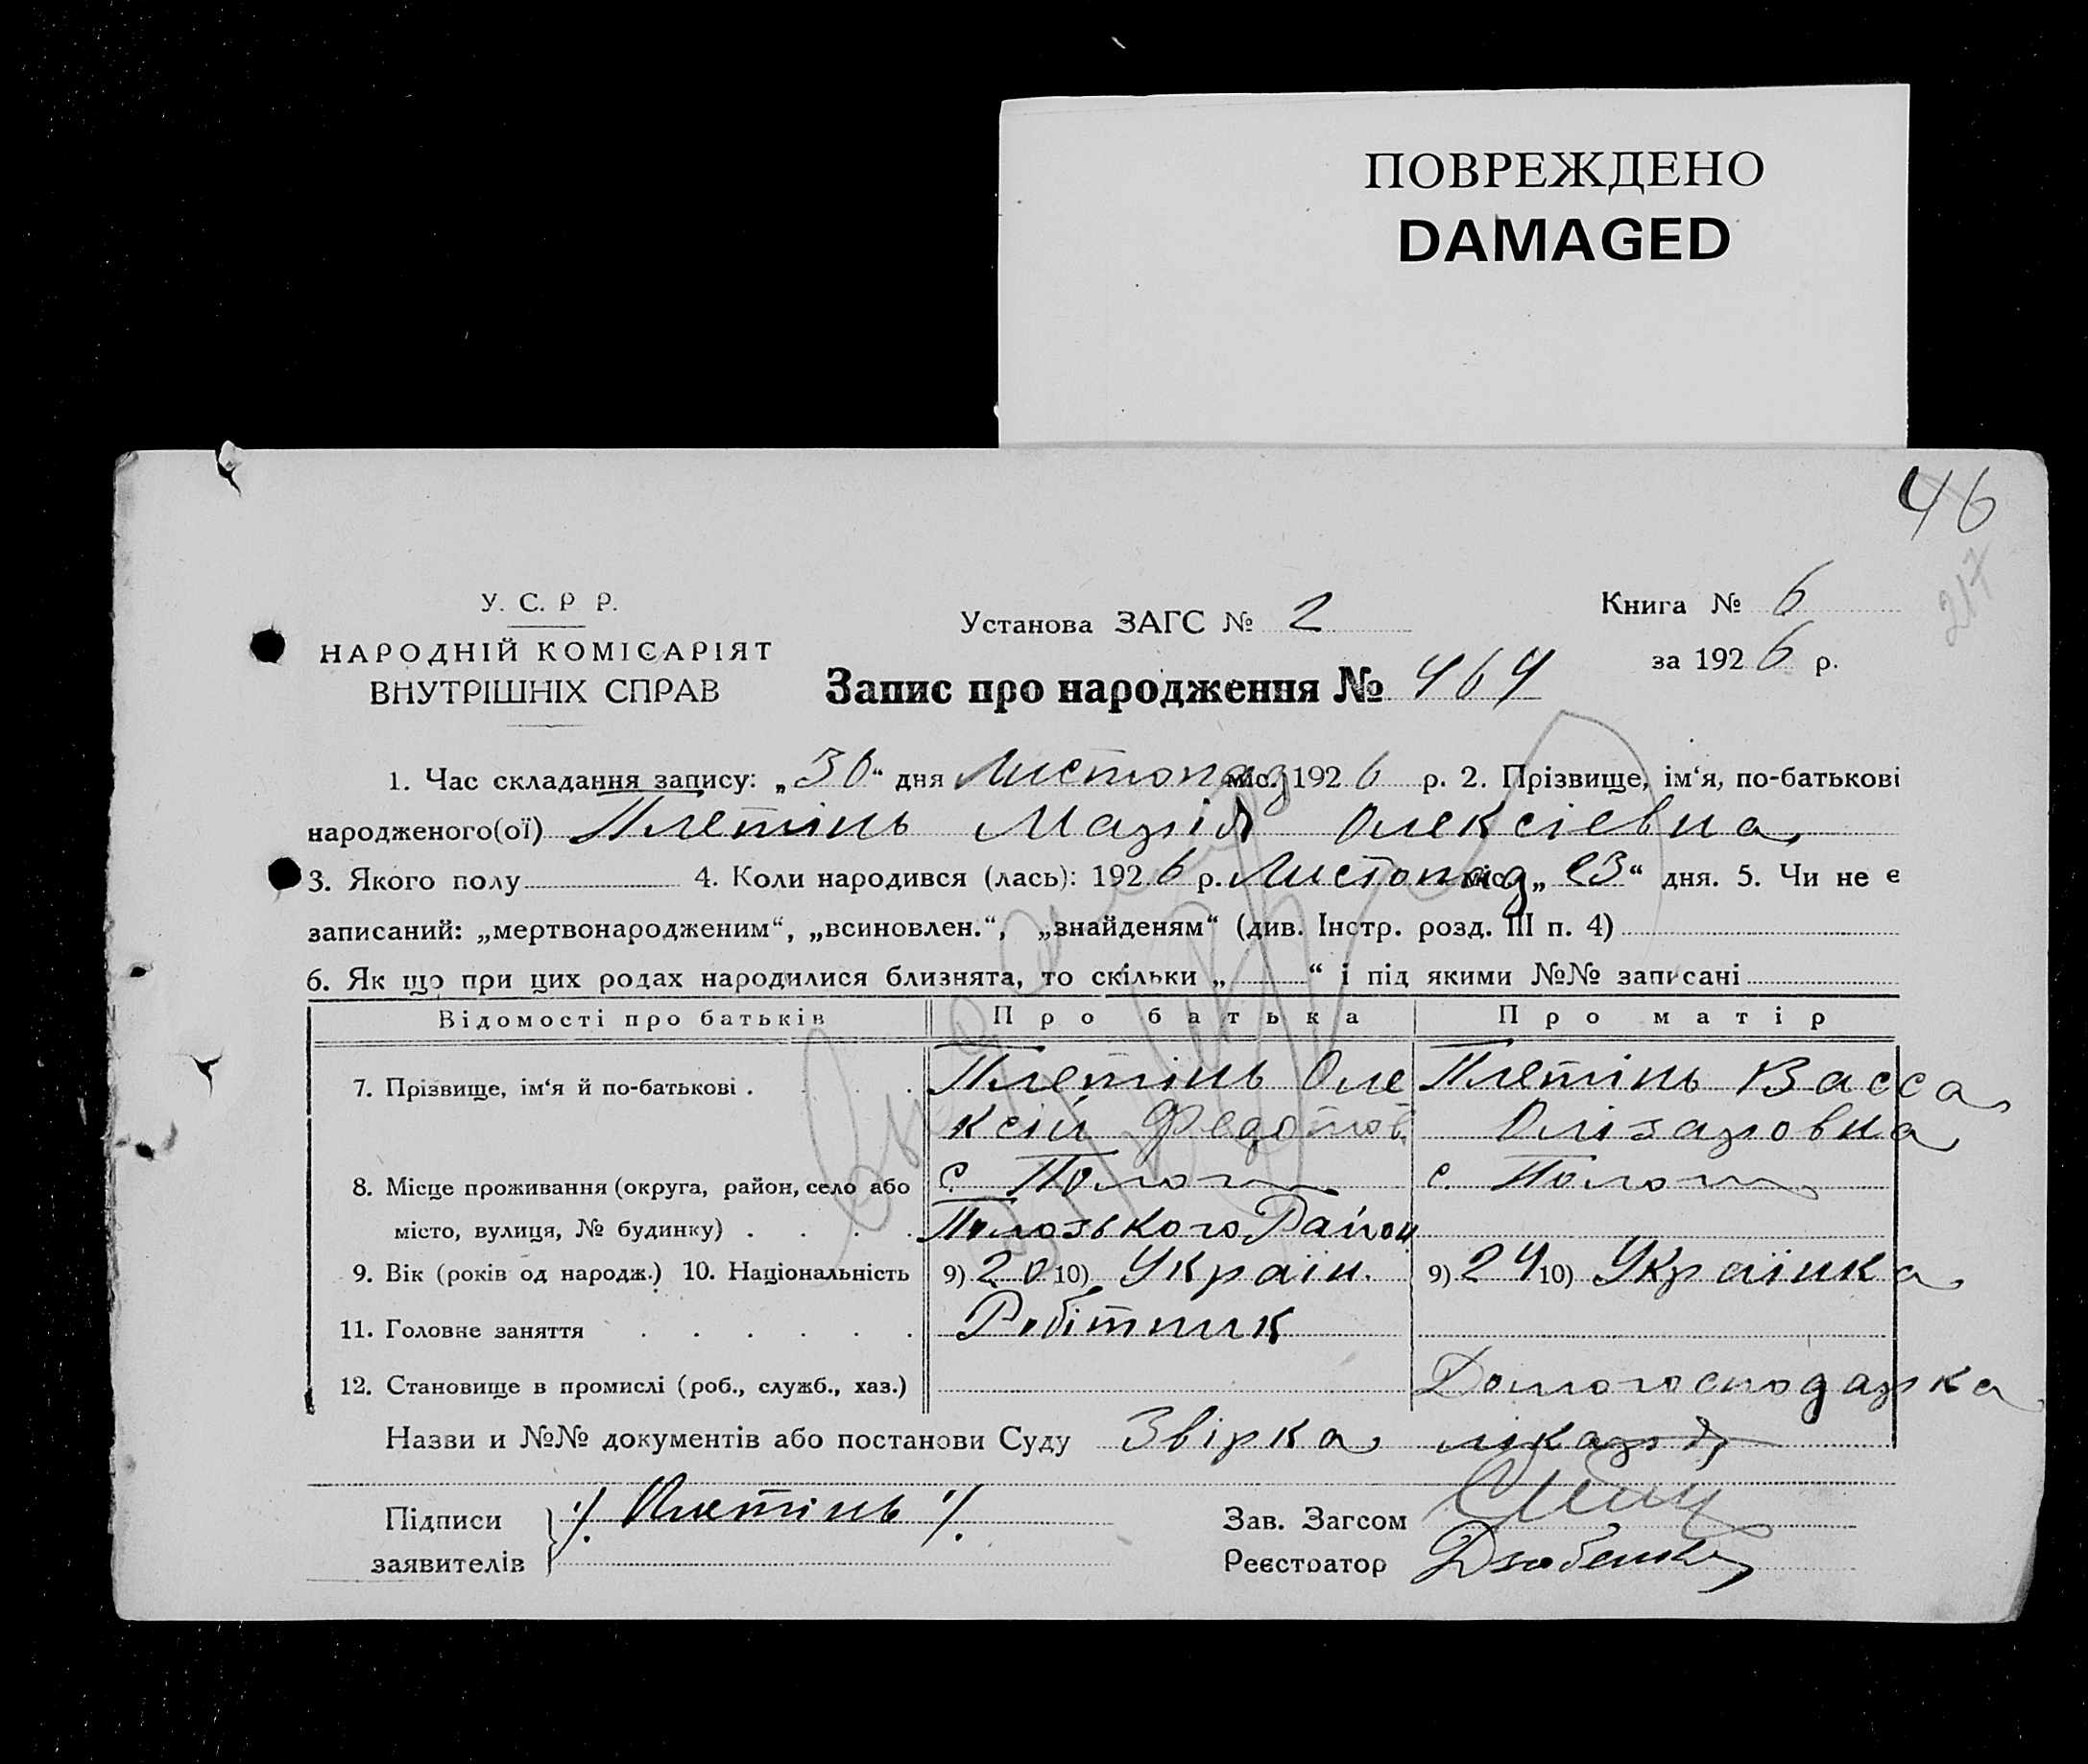 ПОВРЕЖДЕНО
DAMAGED
46
217
У. С. Р Р.
НАРОДНІЙ КОМІСАРІЯТ
ВНУТРІШНІХ СПРАВ
Установа ЗАГС № 2
Книга № 6
за 1926 р.
Запис про народження № 464
1. Час складання запису: „30“ дня Листопад міс. 1926 р. 2. Прізвище, ім‘я, по-батькові
народженого(ої) Плетінь Марія Олексієвна
3. Якого полу 4. Коли народився (лась): 1926 р. Листопад міс. „23“ дня. 5. Чи не є
записаний: „мертвонародженим“, „всиновлен.“, „знайденям“ (див. Інстр. розд. III п. 4)
6. Як що при цих родах народилися близнята, то скільки „ “ і під якими №№ записані
Відомості про батьків Про батька Про матір
7. Прізвище, ім‘я й по-батькові . . . Плетінь Оле Плетінь Васса
ксій Федотов. Олізаровна
8. Місце проживання (округа, район, село або с. Пологи с. Пологи
місто, вулиця, № будинку) . . . . Пологзького Район
9. Вік (років од народж.) 10. Національність 9) 20 10) Україн. 9) 24 10) Українка
11. Головне заняття . . . . . . Робітник
12. Становище в промислі (роб., служб., хаз.) Домогосподарка
Назви и №№ документів або постанови Суду Звірка лікаря
Підписи заявителів } ٪ Плетінь ٪
Зав. Загсом
Реєстратор Дзюбенко